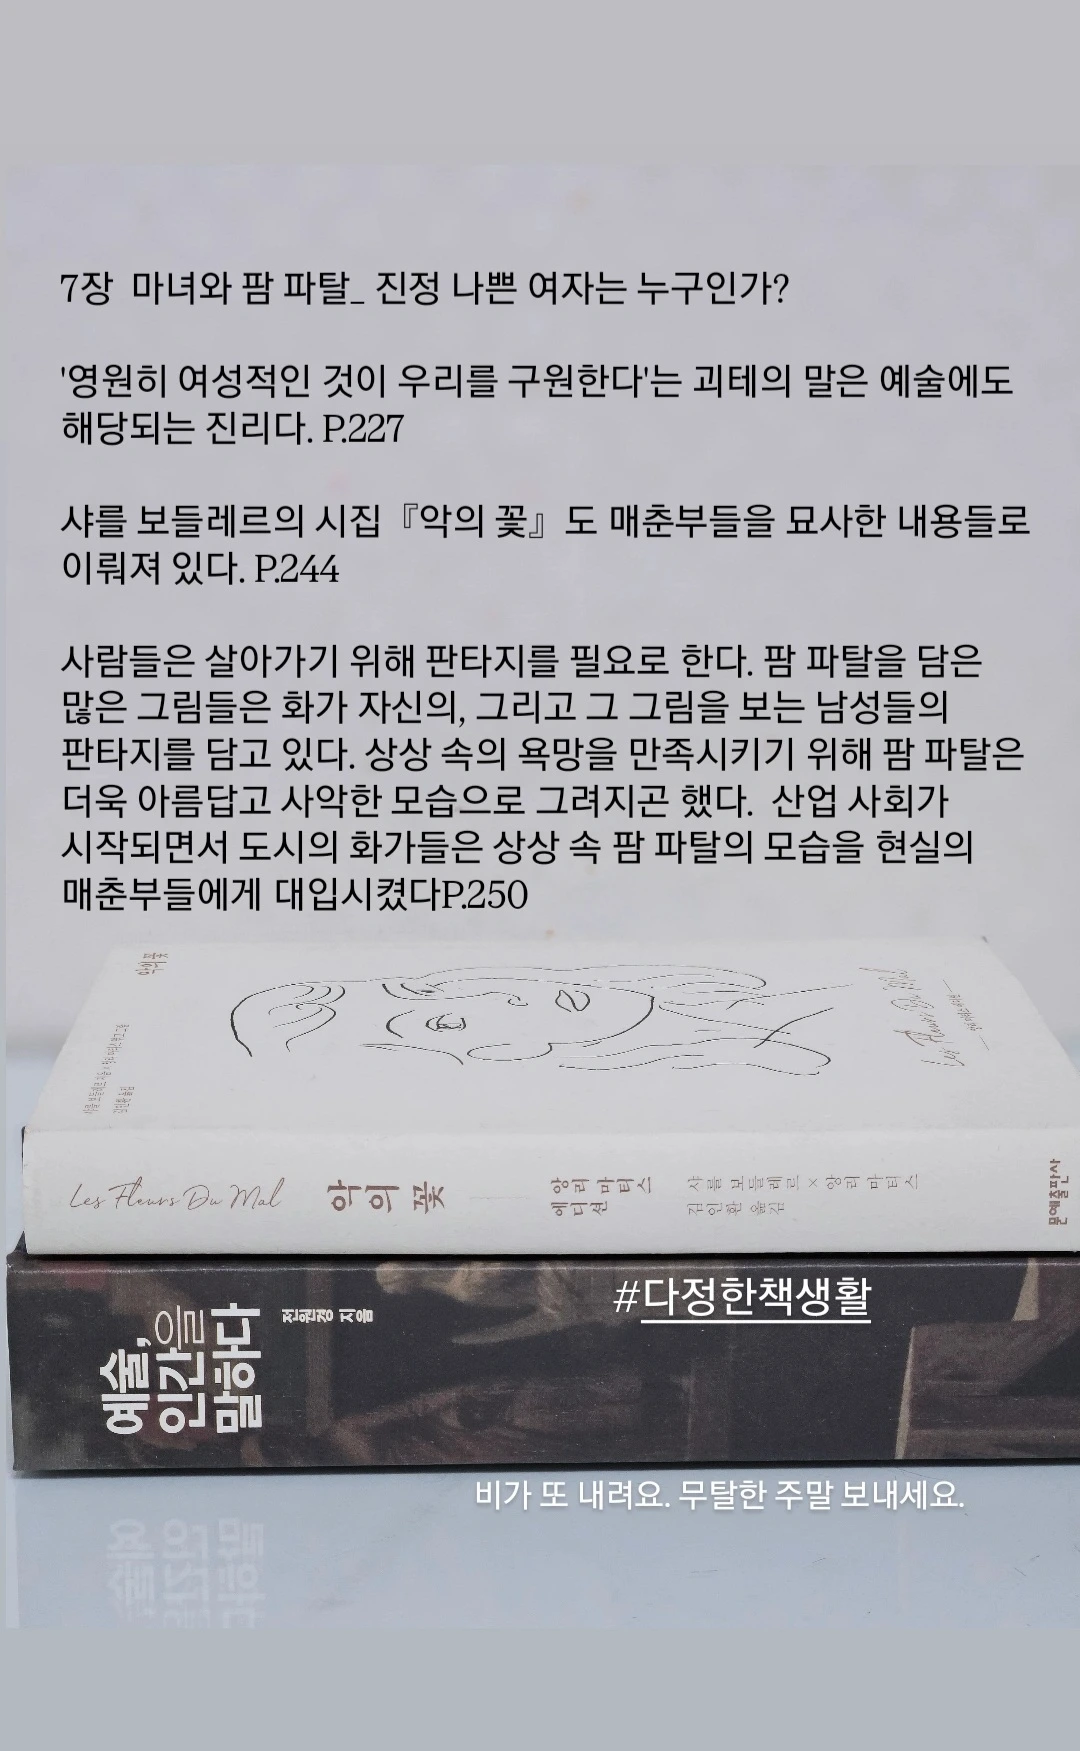 7장  마녀와 팜 파탈_ 진정 나쁜 여자는 누구인가?
'영원히 여성적인 것이 우리를 구원한다'는 괴테의 말은 예술에도
해당되는 진리다. P.227
샤를 보들레르의 시집『악의 꽃』도 매춘부들을 묘사한 내용들로
이뤄져 있다. P.244
사람들은 살아가기 위해 판타지를 필요로 한다. 팜 파탈을 담은
많은 그림들은 화가 자신의, 그리고 그 그림을 보는 남성들의
판타지를 담고 있다. 상상 속의 욕망을 만족시키기 위해 팜 파탈은
더욱 아름답고 사악한 모습으로 그려지곤 했다.  산업 사회가
시작되면서 도시의 화가들은 상상 속 팜 파탈의 모습을 현실의
매춘부들에게 대입시켰다P.250
악의 꽃
Les Fleurs Du Mal
Les Fleurs Du Mal 악의 꽃
앙리 마티스
에디션
샤를 보들레르 × 앙리 마티스
김인환 옮김
문예출판사
예술,
인간을
말하다
전원경 지음
#다정한책생활
비가 또 내려요. 무탈한 주말 보내세요.